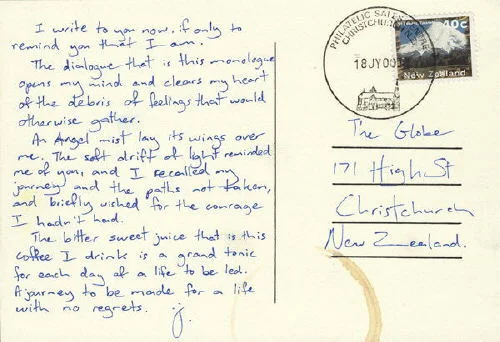 I write to you now, if only to
remind you that I am.
The dialogue that is this monologue
opens my mind and clears my heart
of the debris of feelings that would
otherwise gather.
An Angel mist lay its wings over
me. The soft drift of light reminded
me of you, and I recalled my
journey and the paths not taken,
and briefly wished for the courage
I hadn't had.
The bitter sweet juice that is this
coffee I drink is a grand tonic
for each day of a life to be led.
A journey to be made for a life
with no regrets.
j.
PHILATELIC SALES
CHRISTCHURCH
18 JY 00
40c
New Zealand
The Globe
171 High St
Christchurch
New Zealand.